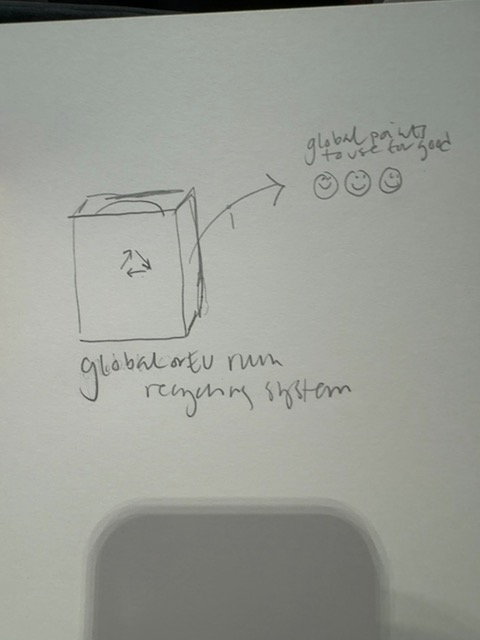 global points
to use for good
global or EU run
recycling system